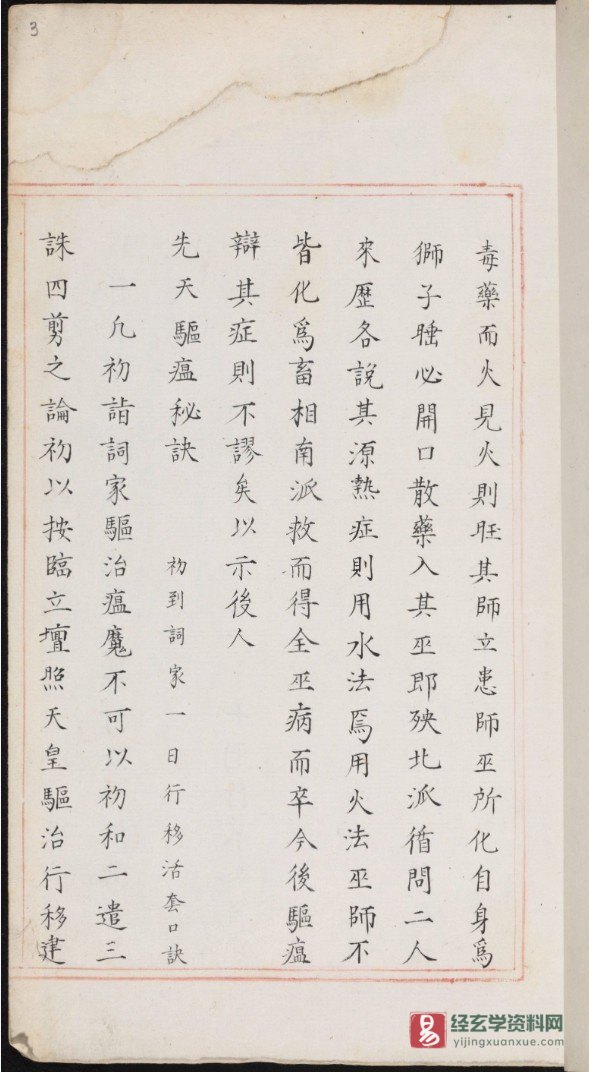 3
毒藥而火見火則旺其師立患師巫所化自身爲
獅子睡必開口散藥入其巫即殃北派循問二人
來歷各說其源熱症則用水法焉用火法巫師不
皆化爲畜相南派救而得全巫病而卒今後驅瘟
辯其症則不謬矣以示後人
先天驅瘟秘訣 初到詞家一日行移活套口訣
一凡初詣詞家驅治瘟魔不可以初和二遣三
誅四剪之論初以按臨立壇照天皇驅治行移建
易 经玄学资料网
yijingxuanxue.com